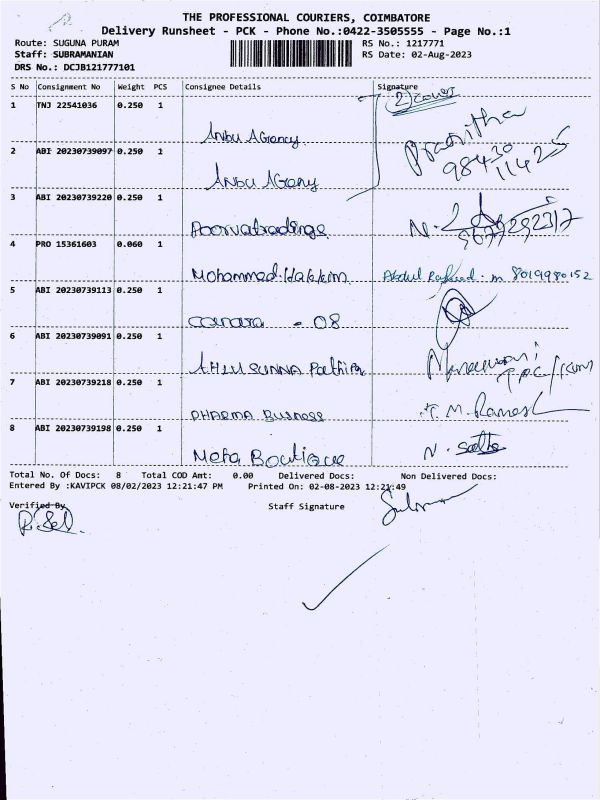 THE PROFESSIONAL COURIERS, COIMBATORE
Delivery Runsheet - PCK - Phone No.:0422-3505555 - Page No.:1
Route: SUGUNA PURAM RS No.: 1217771
Staff: SUBRAMANIAN RS Date: 02-Aug-2023
DRS No.: DCJB121777101
S No Consignment No Weight PCS Consignee Details Signature
(2) cover
1 TNJ 22541036 0.250 1 Anbu Agency Pranitha
2 ABI 20230739097 0.250 1 Anbu Ageny
3 ABI 20230739220 0.250 1 Poorvatradinge N.
4 PRO 15361603 0.060 1 Mohammed. Hakkim Abdul Rasheed. m 8019980152
5 ABI 20230739113 0.250 1 canara - 08
6 ABI 20230739091 0.250 1 AHLU SUNNA
7 ABI 20230739218 0.250 1 PHARMA Busness T. M. Ramesh
8 ABI 20230739198 0.250 1 Meha Boutique N.
Total No. Of Docs: 8 Total COD Amt: 0.00 Delivered Docs: Non Delivered Docs:
Entered By :KAVIPCK 08/02/2023 12:21:47 PM Printed On: 02-08-2023 12:21:49
Verified By Staff Signature
R. Sel